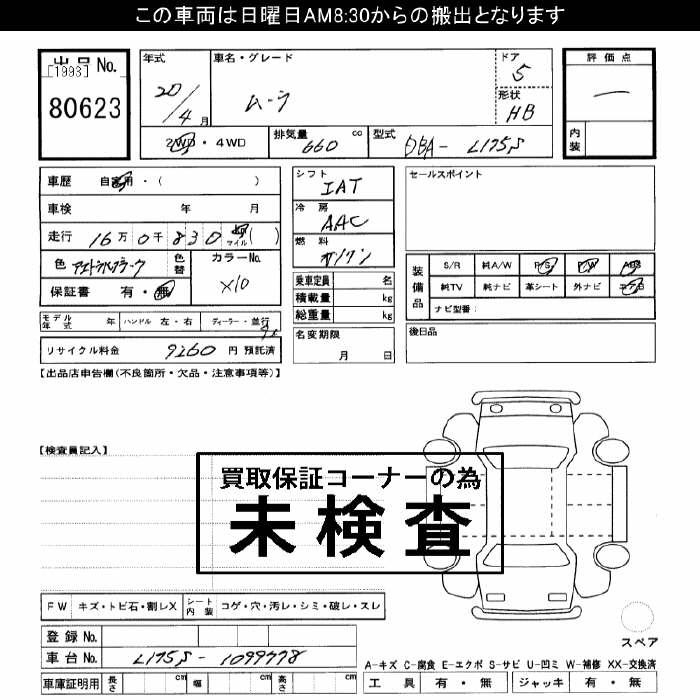 この車両は日曜日AM8:30からの搬出となります
出品No.
[1993]
80623
年式
20/4月
車名・グレード
ムーヴ
ドア
5
形状
HB
評価点
内装
2WD・4WD
排気量 660 cc
型式 DBA- L175S
車歴 自家用・( )
車検 年 月
走行 16万0千830 km マイル ( )
色 アストラルブラック 色替
カラーNo.
X10
保証書 有・無
シフト IAT
冷房 AAC
燃料 ガソリン
乗車定員 名
積載量 kg
総重量 kg
名変期限
月 日
セールスポイント
装備品
S/R 純A/W P/S P/W ABS
純TV 純ナビ 革シート 外ナビ エアB
ナビ型番:
後日品
モデル年式 年 ハンドル 左・右 ディーラー・並行
リサイクル料金 9260 円 預託済
【出品店申告欄(不良箇所・欠品・注意事項等)】
【検査員記入】
買取保証コーナーの為
未検査
FW キズ・トビ石・割レX シート内装 コゲ・穴・汚レ・シミ・破レ・スレ
登録No.
車台No. L175S- 1099778
車庫証明用 長さ cm 幅 cm 高さ cm
スペア
A-キズ C-腐食 E-エクボ S-サビ U-凹ミ W-補修 XX-交換済
工具 有・無 ジャッキ 有・無